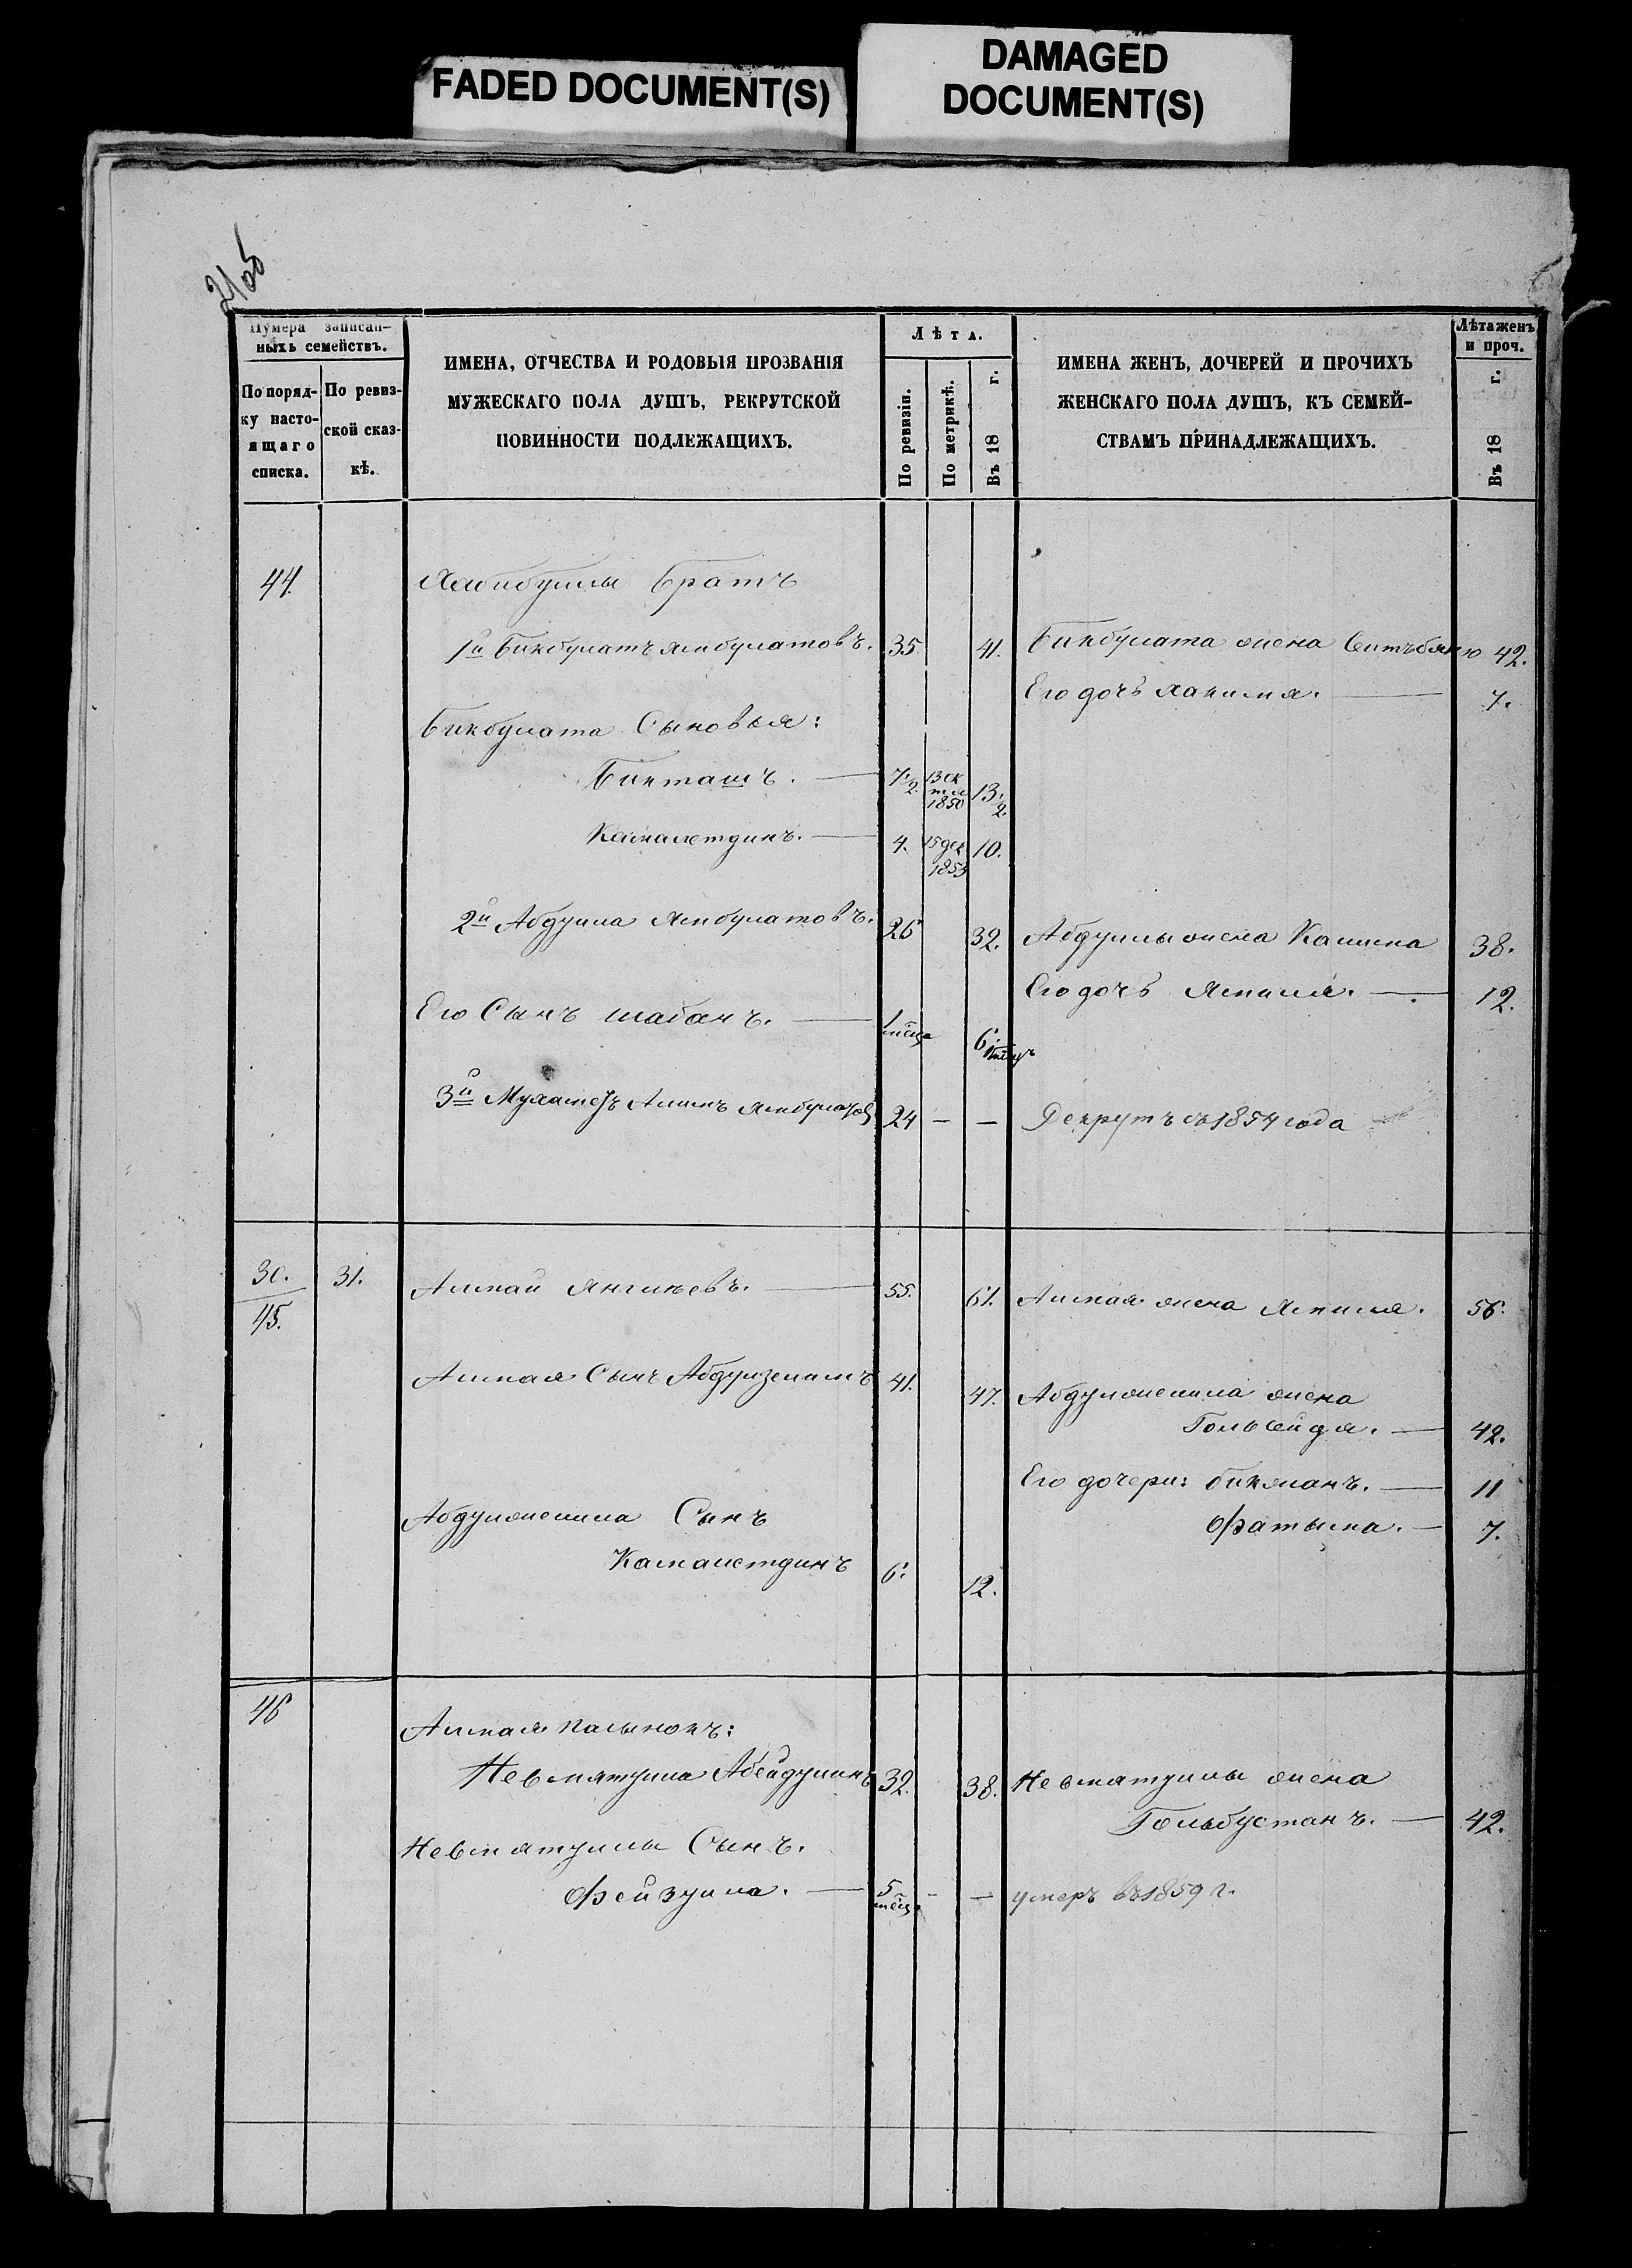 FADED DOCUMENT(S)
DAMAGED
DOCUMENT(S)
Нумера записан-
ныхъ семействъ.
По поряд-
ку насто-
ящаго
списка.
По ревиз-
ской сказ-
кѣ.
ИМЕНА, ОТЧЕСТВА И РОДОВЫЯ ПРОЗВАНІЯ
МУЖЕСКАГО ПОЛА ДУШЪ, РЕКРУТСКОЙ
ПОВИННОСТИ ПОДЛЕЖАЩИХЪ.
Лѣта.
По ревизіи.
По метрикѣ.
Въ 18 г.
ИМЕНА ЖЕНЪ, ДОЧЕРЕЙ И ПРОЧИХЪ
ЖЕНСКАГО ПОЛА ДУШЪ, КЪ СЕМЕЙ-
СТВАМЪ ПРИНАДЛЕЖАЩИХЪ.
Лѣта женъ
и проч.
Въ 18 г.
44. братъ
1й Бикбулатъ Ямбулатовъ. 35. 41. Бикбулата жена 42.
Его дочь Ханимя. 7.
Бикбулата Сыновья:
Бикташъ. 7 1/2. 13 ок
тя
1850 13 1/2.
Камалетдинъ. 4. 15 дек
1853 10.
2й Абдулла Ямбулатовъ. 26 32. Абдуллы жена 38.
Его дочь Ямиля. 12.
Его Сынъ Шабанъ. 1 мѣсяц 6
3й Мухаметъ Аминъ Ямбулатов 24 — — Рекрутъ съ 1854 года
30. 31. Алкай 55. 61. Алкая жена Ямиля. 56.
45.
Алкая Сынъ 41. 47. жена
42.
Его дочери: 11
Фатыма. 7.
Сынъ
Камалетдинъ 6. 12.
46 Алкая пасынокъ:
Невматулла Абейдуллинъ 32. 38. Невматуллы жена
Гольбустанъ. 42.
Невматуллы Сынъ.
Фейзулла. 5
мѣсяц. — — умеръ въ 1859 г.